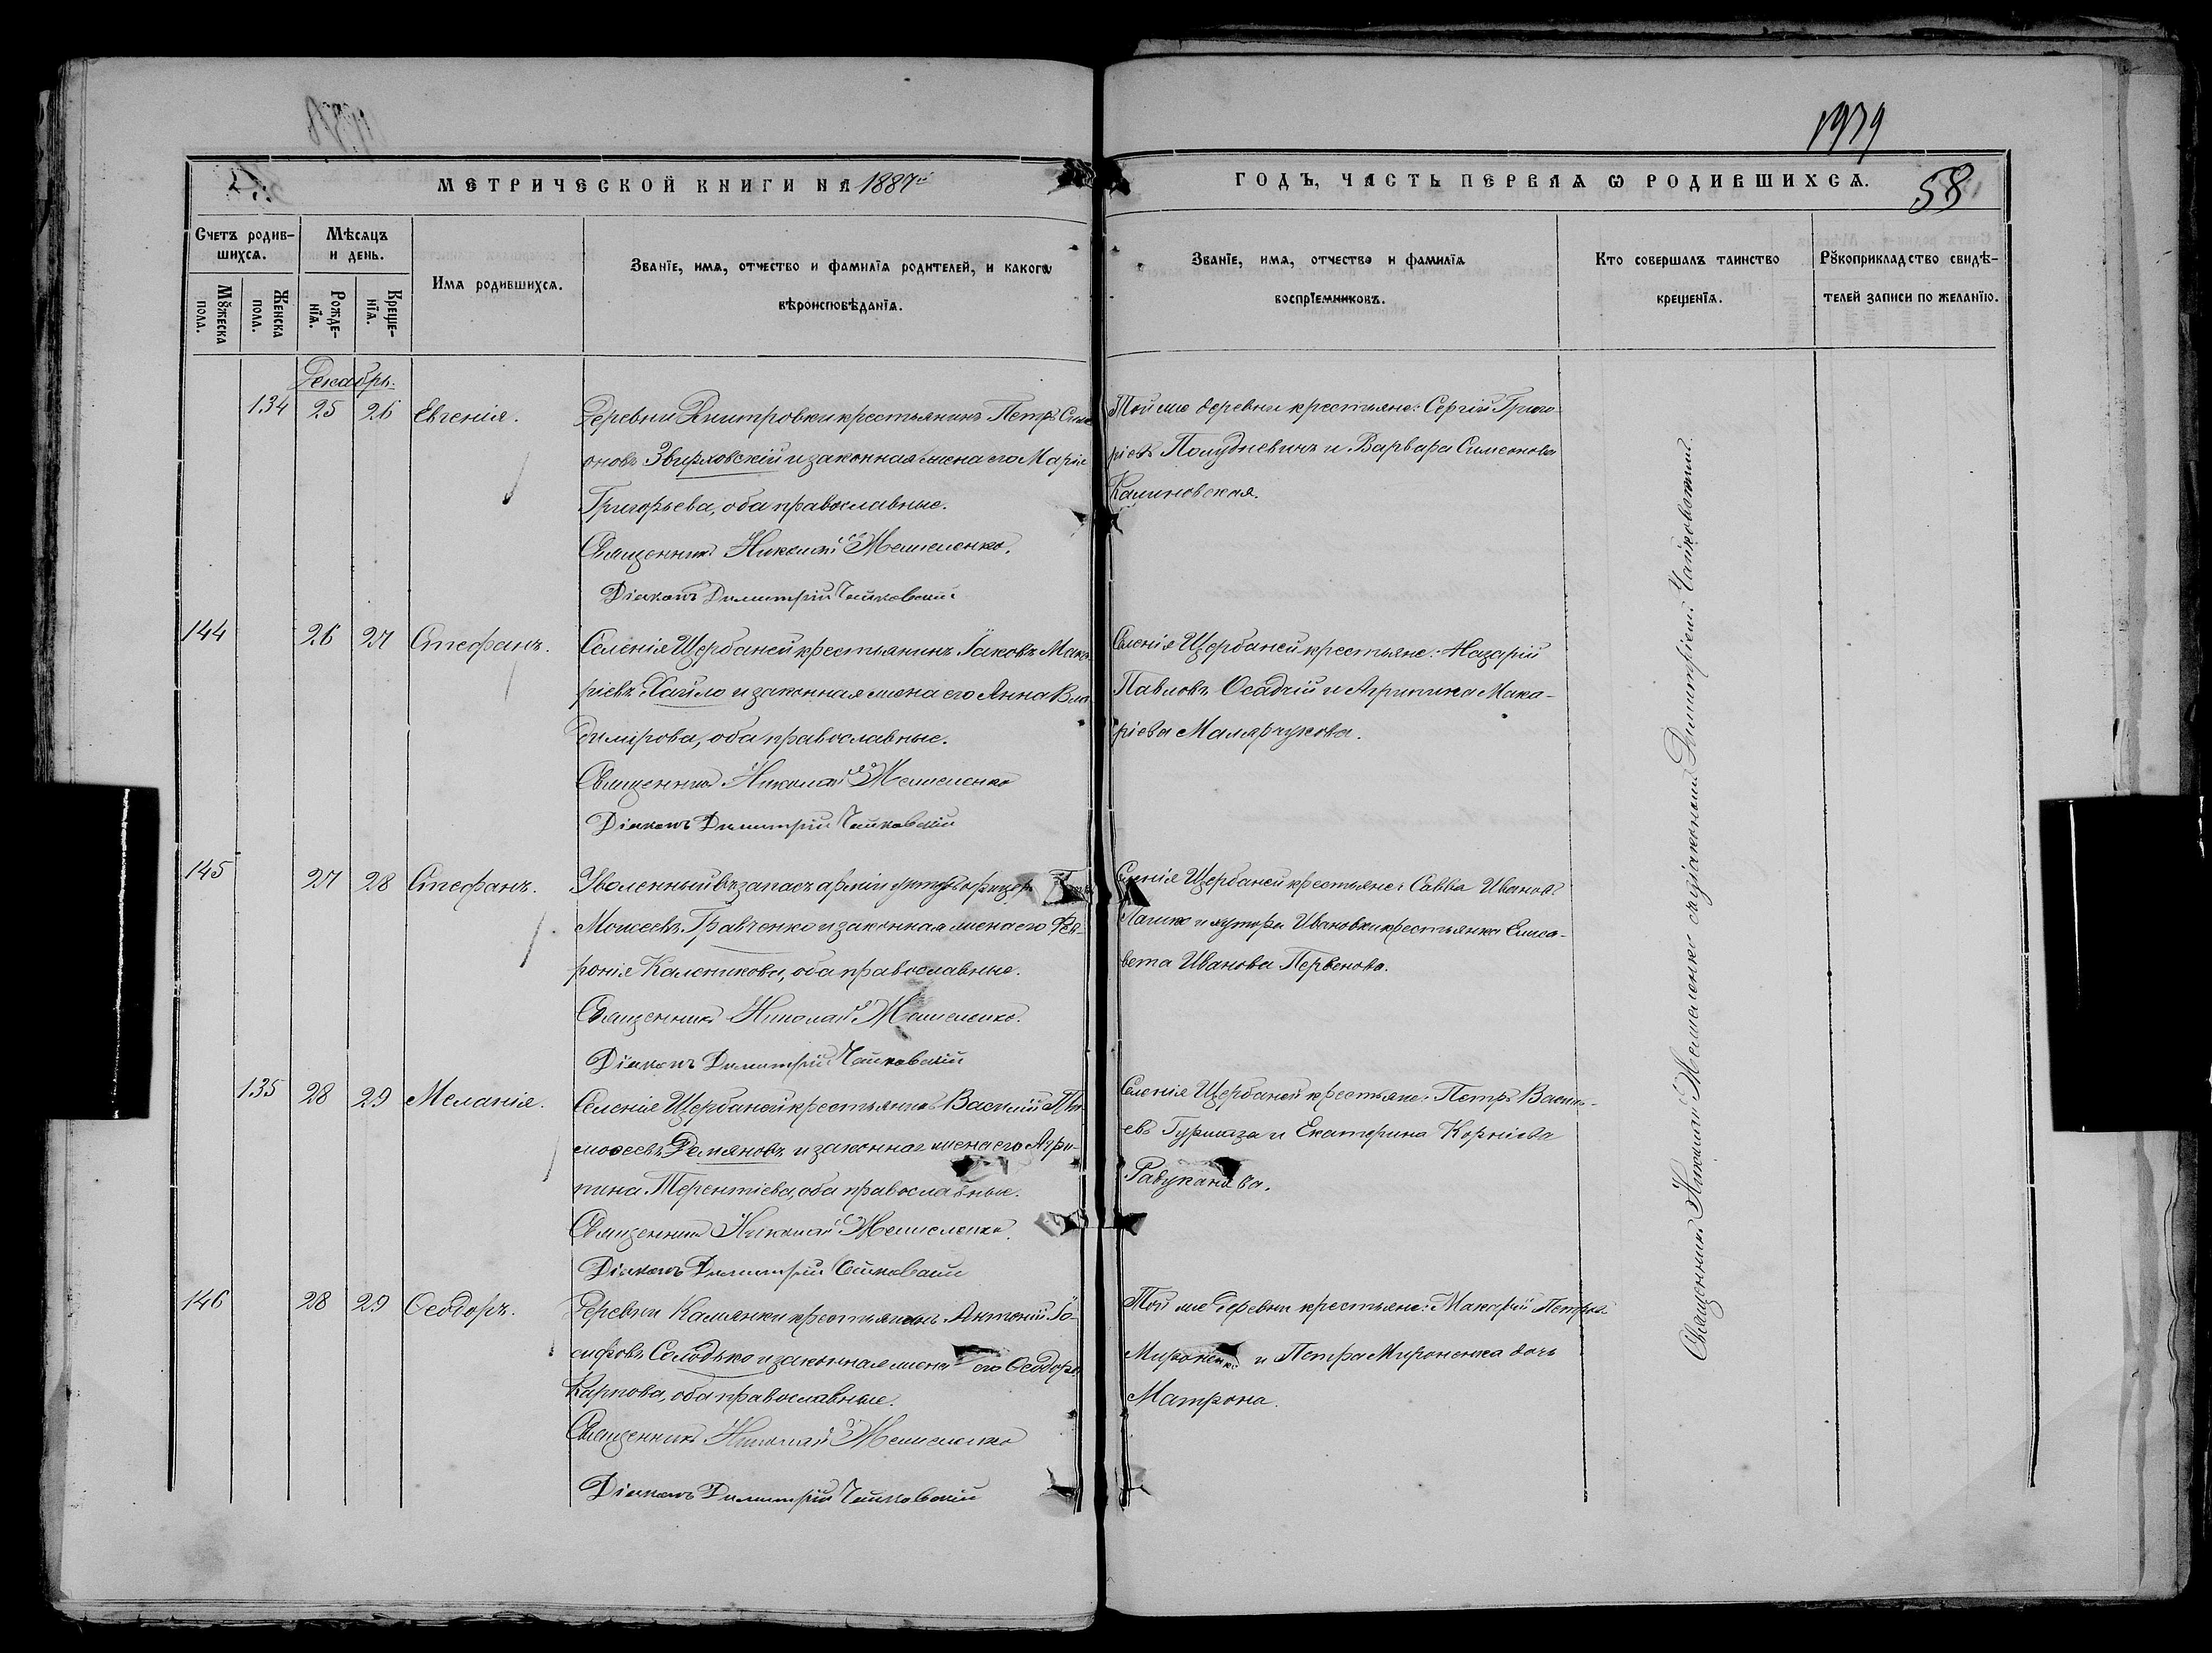 1939
МЕТРИЧЕСКОЙ КНИГИ НА 1887й
ГОДЪ, ЧАСТЬ ПЕРВАЯ Ѡ РОДИВШИХСЯ.
58
Счетъ родив-
шихся.
Мѣсяцъ
и день.
Мꙋжеска
пола.
Женска
пола.
Рожде-
нїя.
Креще-
нїя.
Имя родившихся.
Званїе, имя, отчество и фамилїя родителей, и какогѡ
вѣроисповѣданїя.
Званїе, имя, отчество и фамилїя
воспрїемниковъ.
Кто совершалъ таинство
крещенїя.
Рꙋкоприкладство свидѣ-
телей записи по желанїю.
Декабрь.
134 25 26 Евгенія.
Деревни Дмитровки крестьянинъ Петръ Симе
оновъ Звиржовскій и законная жена его Марія
Григорьева, оба православные.
Священникъ Николай
Діаконъ Димитрій Чайковскій
Той же деревни крестьяне: Сергій Григо-
ріевъ Полудневичъ и Варвара Симеонова
Калиновская.
144 26 27 Стефанъ.
Селенія Щербаней крестьянинъ Іаковъ Мака
ріевъ Хайло и законная жена его Анна Вла
димірова, оба православные.
Священникъ Николай
Діаконъ Димитрій Чайковскій
Селенія Щербаней крестьяне: Назарій
Павловъ Осадчій и Агрипина Мака-
ріева Малярчукова.
145 27 28 Стефанъ.
Уволенный въ запасъ арміи унтеръ офицеръ
Моисеевъ Гравченко и законная жена его Фев-
ронія Каленикова, оба православные.
Священникъ Николай
Діаконъ Димитрій Чайковскій
Селенія Щербаней крестьяне: Савва Ивановъ
и хутора Ивановки крестьянка Елиса-
вета Иванова Первенова.
135 28 29 Меланія.
Селенія Щербаней крестьянинъ Василій Ти-
моѳеевъ Демяновъ и законная жена его Агри-
пина Терентіева, оба православные.
Священникъ Николай
Діаконъ Димитрій Чайковскій
Селенія Щербаней крестьяне: Петръ Василь-
евъ Гуржаза и Екатерина Корніева
146 28 29 Ѳеодоръ.
Деревни Камянки крестьянинъ Антоній Іо-
сифовъ Солодько и законная жена его Ѳеодора
Карпова, оба православные.
Священникъ Николай
Діаконъ Димитрій Чайковскій
Той же деревни крестьяне: Макарій Петровъ
Мироненко и Петра Мироненка дочь
Матрона.
Священникъ Николай съ діакономъ Димитріемъ Чайковскимъ.